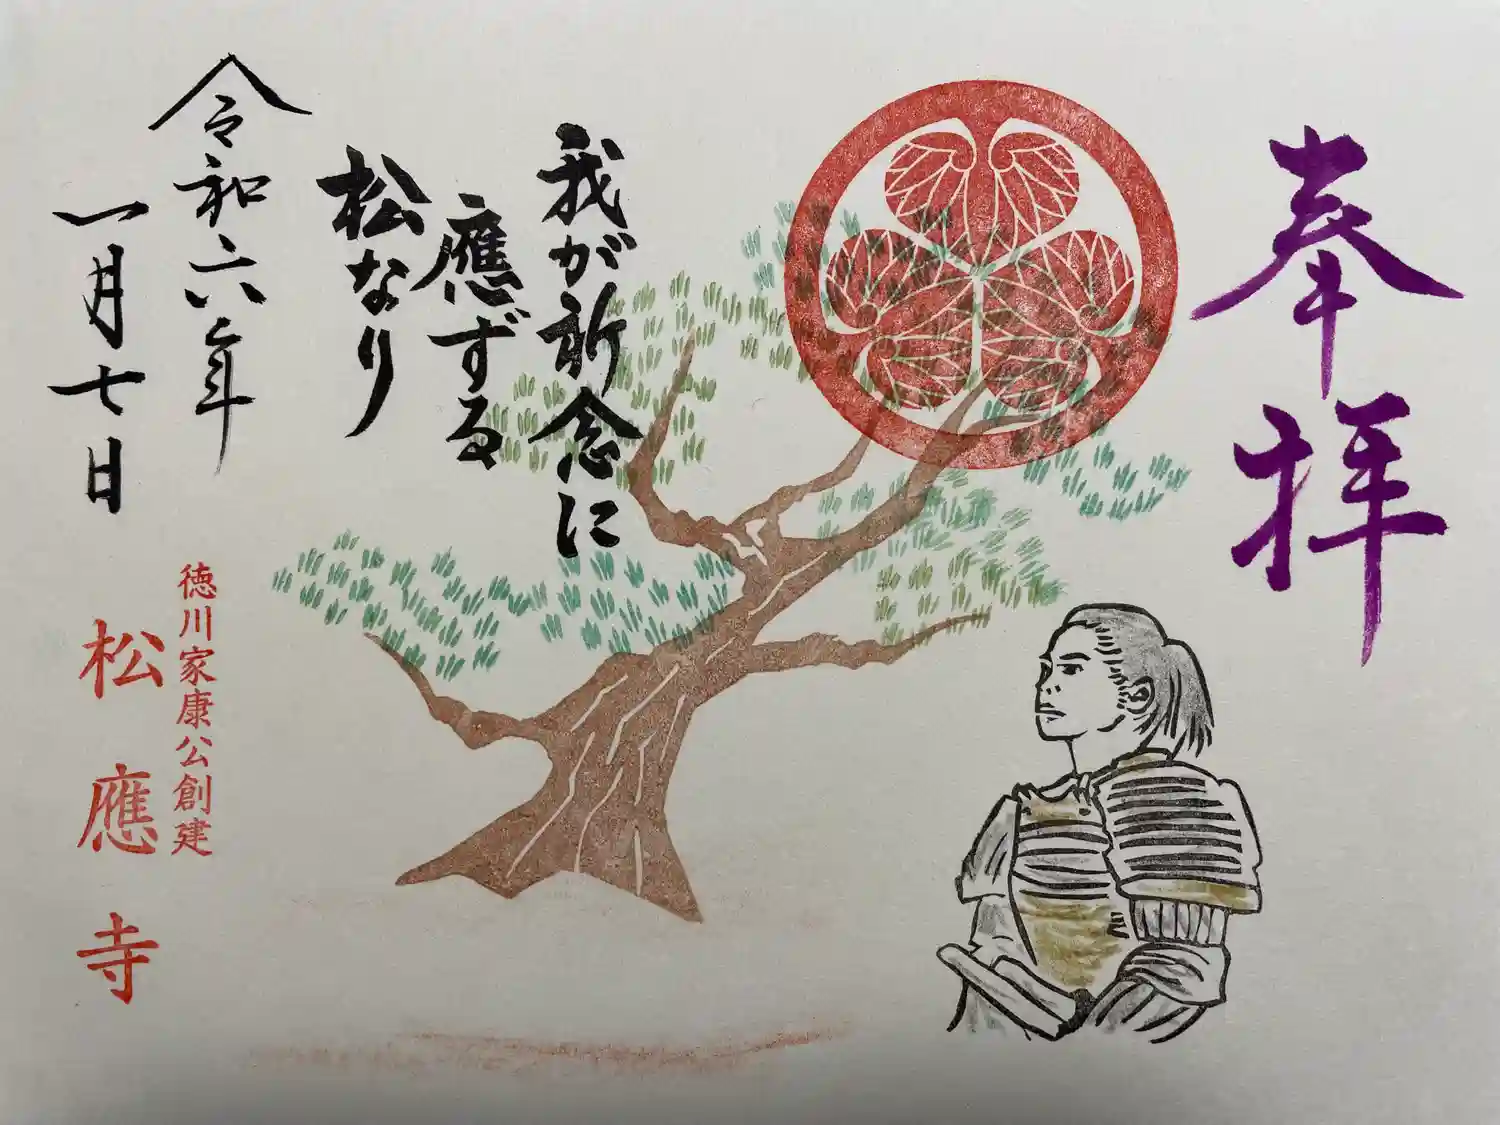 奉拝
我が祈念に
應ずる
松なり
令和六年
一月七日
徳川家康公創建
松應寺